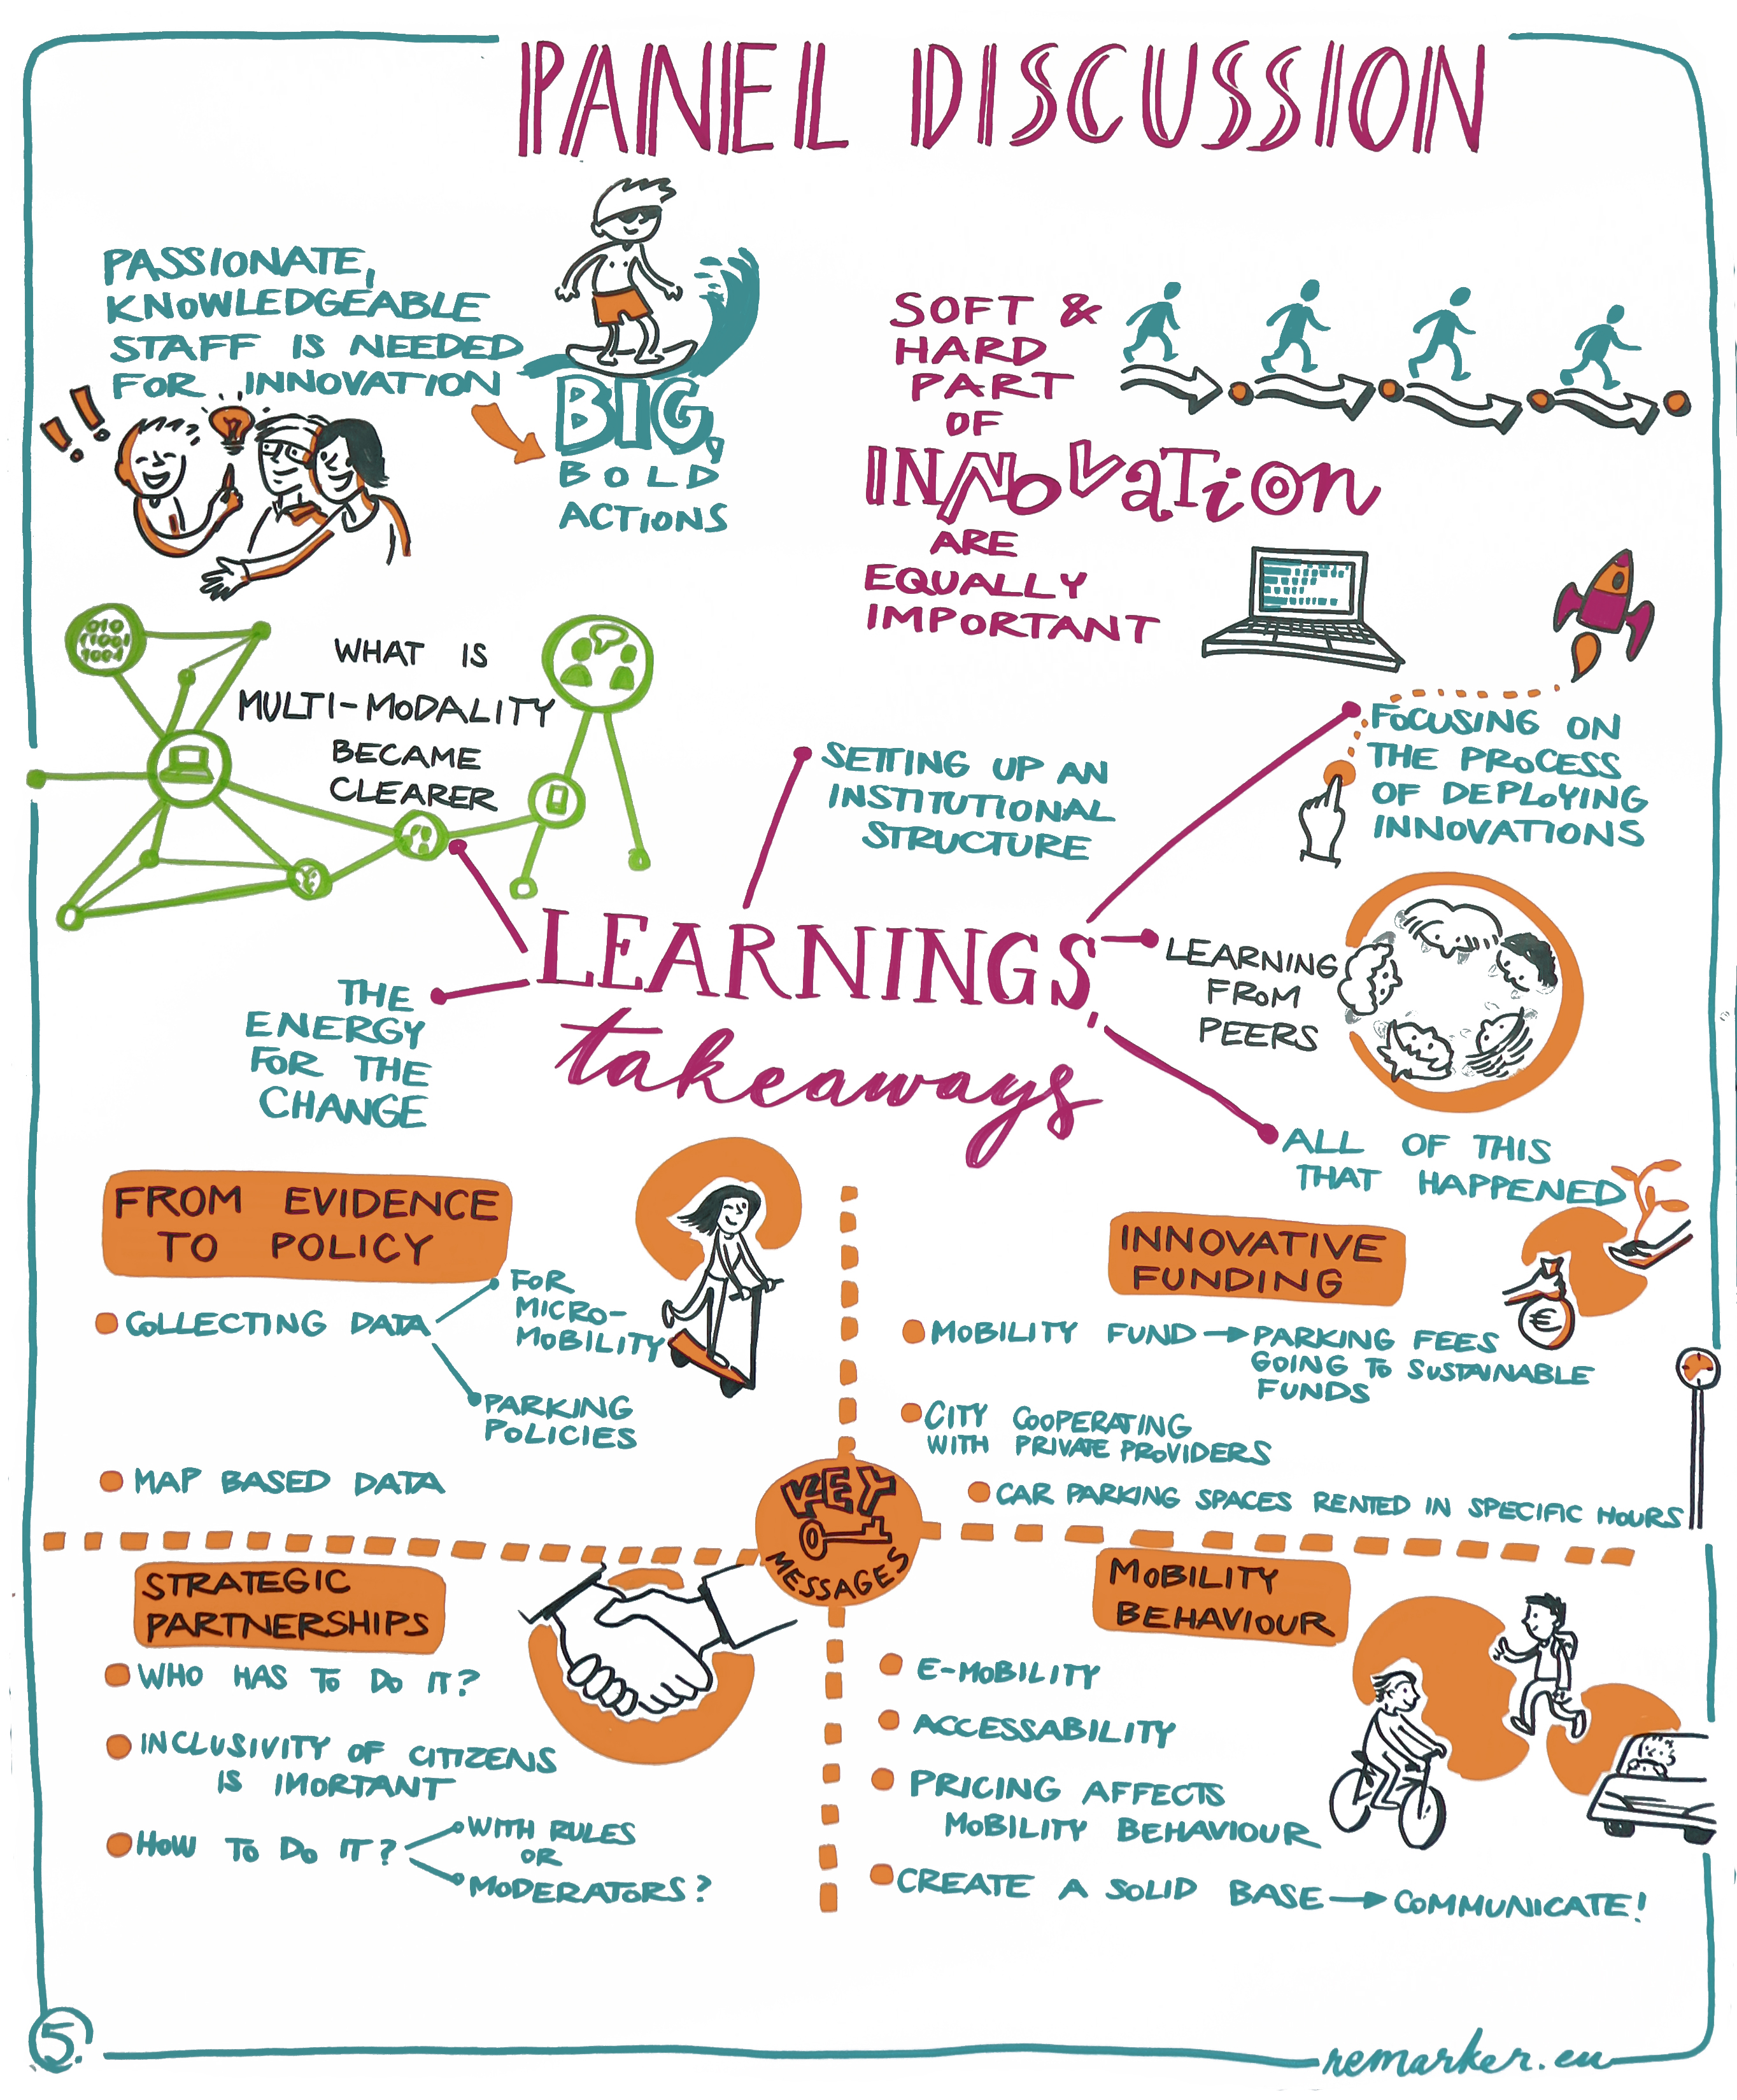 PANEL DISCUSSION
PASSIONATE,
KNOWLEDGEABLE
STAFF IS NEEDED
FOR INNOVATION
!!
BIG,
BOLD
ACTIONS
SOFT &
HARD
PART
OF
INNOVATION
ARE
EQUALLY
IMPORTANT
010
11001
1001
WHAT IS
MULTI-MODALITY
BECAME
CLEARER
SETTING UP AN
INSTITUTIONAL
STRUCTURE
FOCUSING ON
THE PROCESS
OF DEPLOYING
INNOVATIONS
LEARNINGS,
takeaways
THE
ENERGY
FOR THE
CHANGE
LEARNING
FROM
PEERS
ALL OF THIS
THAT HAPPENED
FROM EVIDENCE
TO POLICY
COLLECTING DATA
FOR
MICRO-
MOBILITY
PARKING
POLICIES
MAP BASED DATA
INNOVATIVE
FUNDING
€
MOBILITY FUND → PARKING FEES
GOING TO SUSTAINABLE
FUNDS
CITY COOPERATING
WITH PRIVATE PROVIDERS
CAR PARKING SPACES RENTED IN SPECIFIC HOURS
KEY
MESSAGES
STRATEGIC
PARTNERSHIPS
WHO HAS TO DO IT?
INCLUSIVITY OF CITIZENS
IS IMORTANT
HOW TO DO IT?
WITH RULES
OR
MODERATORS?
MOBILITY
BEHAVIOUR
E-MOBILITY
ACCESSABILITY
PRICING AFFECTS
MOBILITY BEHAVIOUR
CREATE A SOLID BASE → COMMUNICATE!
5.
remarker.eu